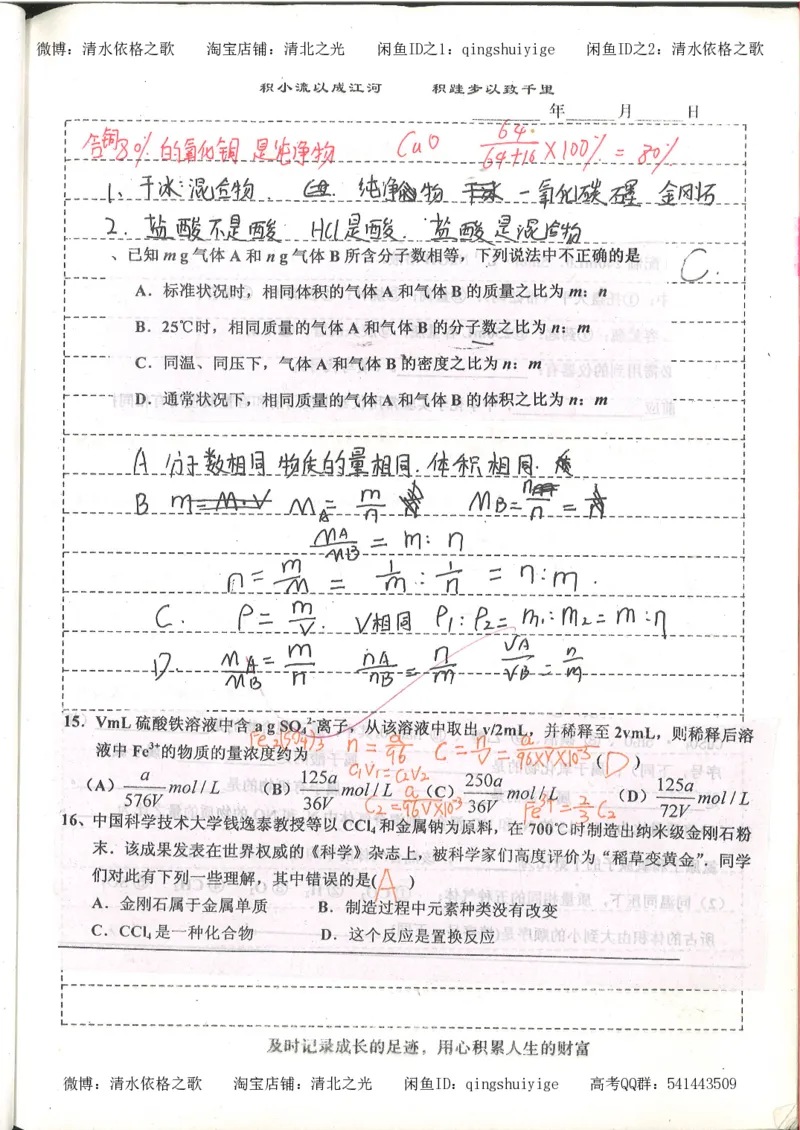 微博：清水依格之歌 淘宝店铺：清北之光 闲鱼ID之1：qingshuiyige 闲鱼ID之2：清水依格之歌
积小流以成江河 积跬步以致千里
年 月 日
含铜80%的氧化铜是纯净物 CuO 64/(64+16)×100%=80%
1、干冰混合物. 纯净物 干冰 一氧化碳 石墨 金刚石
2. 盐酸不是酸 HCl是酸. 盐酸是混合物
、已知 m g 气体 A 和 n g 气体 B 所含分子数相等，下列说法中不正确的是 C.
A．标准状况时，相同体积的气体 A 和气体 B 的质量之比为 m：n
B．25℃时，相同质量的气体 A 和气体 B 的分子数之比为 n：m
C．同温、同压下，气体 A 和气体 B 的密度之比为 n：m
D．通常状况下，相同质量的气体 A 和气体 B 的体积之比为 n：m
A 分子数相同 物质的量相同. 体积相同. 质
B m=M·V MA=m/n MB=n/n
MA/MB = m:n
n=m/M = 1/m : 1/n = n:m.
C. ρ=m/V. V相同 ρ1:ρ2=m1:m2=m:n
D. MA/MB=m/n nA/nB=n/m VA/VB=n/m
15、VmL 硫酸铁溶液中含 a g SO₄²⁻离子，从该溶液中取出 v/2mL，并稀释至 2vmL，则稀释后溶
Fe2(SO4)3 n=a/96 C=n/V=a/(96×V×10⁻³)
液中 Fe³⁺的物质的量浓度约为 (D)
C1V1=C2V2
（A）a/576V mol/L （B）125a/36V mol/L （C）250a/36V mol/L （D）125a/72V mol/L
C2=a/(96V×10⁻³) Fe³⁺=2/3 C2
16、中国科学技术大学钱逸泰教授等以 CCl₄ 和金属钠为原料，在 700℃时制造出纳米级金刚石粉
末．该成果发表在世界权威的《科学》杂志上，被科学家们高度评价为“稻草变黄金”．同学
们对此有下列一些理解，其中错误的是(A)
A．金刚石属于金属单质 B．制造过程中元素种类没有改变
C．CCl₄ 是一种化合物 D．这个反应是置换反应
及时记录成长的足迹，用心积累人生的财富
微博：清水依格之歌 淘宝店铺：清北之光 闲鱼ID：qingshuiyige 高考QQ群：541443509